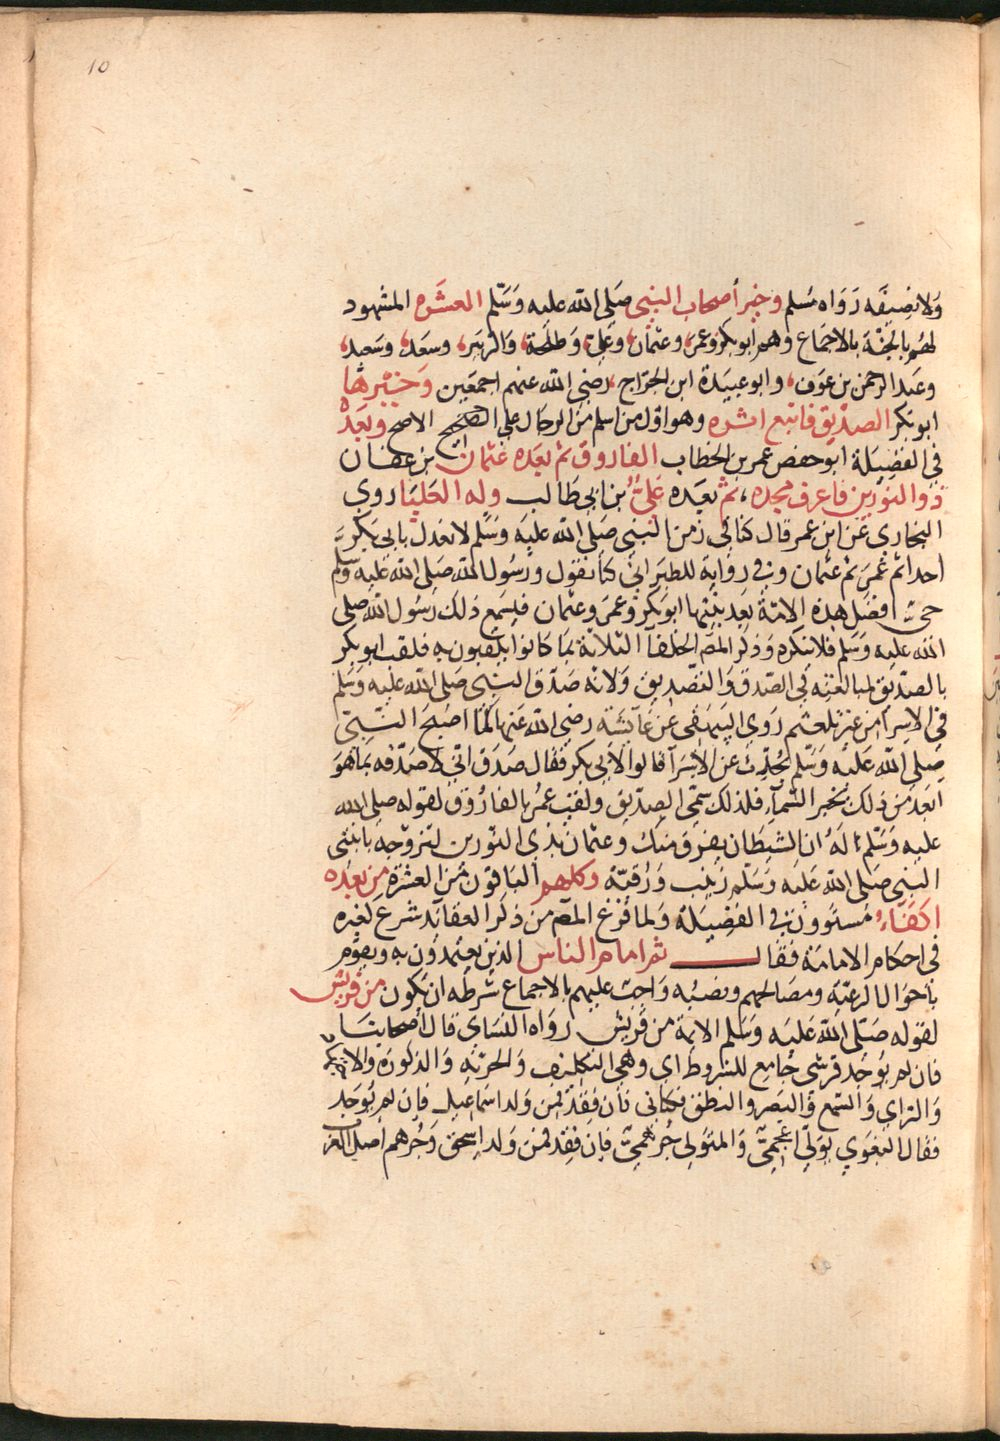 10
ولا نصيفه رواه مسلم وخير أصحاب النبي صلى الله عليه وسلم العشره المشهود
لهم بالجنة بالاجماع وهم ابو بكر وعمر، وعثمان، وعلي، وطلحة، والزبير، وسعد، وسعيد،
وعبد الرحمن بن عوف، وابو عبيدة ابن الجراح، رضي الله عنهم اجمعين وخيرها
ابو بكر الصديق فاتبع اثره وهو اول من اسلم من الرجال على الصحيح الاصح وبعده
في الفضيلة ابو حفص عمر بن الخطاب الفاروق ثم بعده عثمان بن عفان
ذو النورين فاعرف مجده، ثم بعده علي بن ابي طالب وله العليا روي
البخاري عن ابن عمر قال كنا في زمن النبي صلى الله عليه وسلم لا نعدل بابي بكر
احدا ثم عمر ثم عثمان وفي رواية للطبراني كنا نقول ورسول الله صلى الله عليه وسلم
حي افضل هذه الامة بعد نبيها ابو بكر وعمر وعثمان فيسمع ذلك رسول الله صلى
الله عليه وسلم فلا ينكره وذكر المص الخلفآ الثلاثة بما كانوا يلقبون به فلقب ابو بكر
بالصديق لمبالغته في الصدق والتصديق ولانه صدق النبي صلى الله عليه وسلم
في الاسرآ من غير تلعثم روي البيهقي عن عآئشة رضي الله عنها لما اصبح النبي
صلى الله عليه وسلم يحدث عن الاسرآ قالوا لابي بكر فقال صدق اني لاصدقه بما هو
ابعد من ذلك بخبر السمآء فلذلك سمي الصديق ولقب عمر بالفاروق لقوله صلى الله
عليه وسلم له ان الشيطان يفرق منك وعثمان بذي النورين لتزوجه بابنتى
النبي صلى الله عليه وسلم زينب ورقية وكلهم الباقون من العشرة من بعده
اكفآء مستوون في الفضيلة ولما فرغ المص من ذكر العقائد شرع كغيره
في احكام الامامة فقال ثم امام الناس الذين يعتمدون به ويقوم
باحوال الرعية ومصالحهم ونصبه واجب عليهم بالاجماع شرطه ان يكون من قريش
لقوله صلى الله عليه وسلم الايمة من قريش رواه النساي قال اصحابنا
فان لم يوجد قرشي جامع للشروط اي وهي التكليف والحرية والذكورة والاسلام
والراي والسمع والبصر والنطق فكناني فان فقد فمن ولد اسماعيل فان لم يوجد
فقال البغوي يولي اعجمي والمتولي جرهمي فان فقد فمن ولد اسحق وجرهم اصل العرب